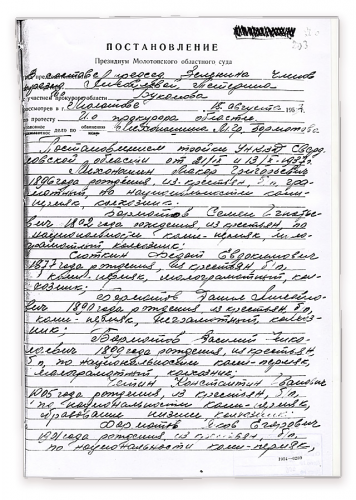 ПОСТАНОВЛЕНИЕ
Президиум Молотовского областного суда
В составе: Председ. Зеленина членов
президиума
с участием прокурора области Буколова
рассмотрев в г. Молотове 18 августа 195
по протесту И.о прокурора области
дело по обвинению Мехоношина М.Гр. Бормотова
Постановлением тройки УНКВД Сверд-
ловской области от и 13/IX-1937г.
Мехоношин Макар Григорьевич
1896 года рождения, из крестьян, б/п, гра-
мотный, по национальности коми-
пермяк, колхозник.
Бормотов Семен Игнать-
евич 1892 года рождения, из крестьян, б/п,
по национальности коми-пермяк, мало-
грамотный, колхозник;
Федот Евдокимович
1877 года рождения, из крестьян, б/п,
коми-пермяк, малограмотный, кол-
хозник;
Бормотов Михайло-
вич 1890 года рождения, из крестьян, б/п,
коми-пермяк, неграмотный, колхоз-
ник;
Бормотов Василий Нико-
лаевич 1890 года рождения, из крестьян,
б/п, по национальности коми-пермяк,
малограмотный, колхозник;
Константин Иванович
1905 года рождения, из крестьян, б/п,
по национальности коми-пермяк,
образование низшее, колхозник;
Бормотов Яков Егорович
года рождения, из крестьян, б/п,
по национальности коми-пермяк,